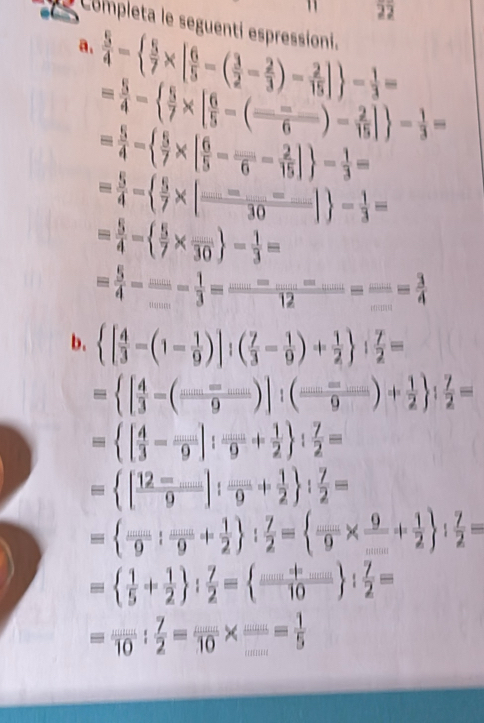 11
22
Completa le seguenti espressioni.
a. 5/4 - {5/7 × [6/5 - (3/2 - 2/3) - 2/15]} - 1/3 =
= 5/4 - {5/7 × [6/5 - (...... - ....../6) - 2/15]} - 1/3 =
= 5/4 - {5/7 × [6/5 - ....../6 - 2/15]} - 1/3 =
= 5/4 - {5/7 × [...... - ...... - ....../30]} - 1/3 =
= 5/4 - {5/7 × ....../30} - 1/3 =
= 5/4 - ....../...... - 1/3 = ...... - ...... - ....../12 = ....../...... = 3/4
b. {[4/3 - (1 - 1/9)] : (7/3 - 1/9) + 1/2} : 7/2 =
= {[4/3 - (...... - ....../9)] : (...... - ....../9) + 1/2} : 7/2 =
= {[4/3 - ....../9] : ....../9 + 1/2} : 7/2 =
= {[12 - ....../9] : ....../9 + 1/2} : 7/2 =
= {....../9 : ....../9 + 1/2} : 7/2 = {....../9 × 9/...... + 1/2} : 7/2 =
= {1/5 + 1/2} : 7/2 = {...... + ....../10} : 7/2 =
= ....../10 : 7/2 = ....../10 × ....../...... = 1/5